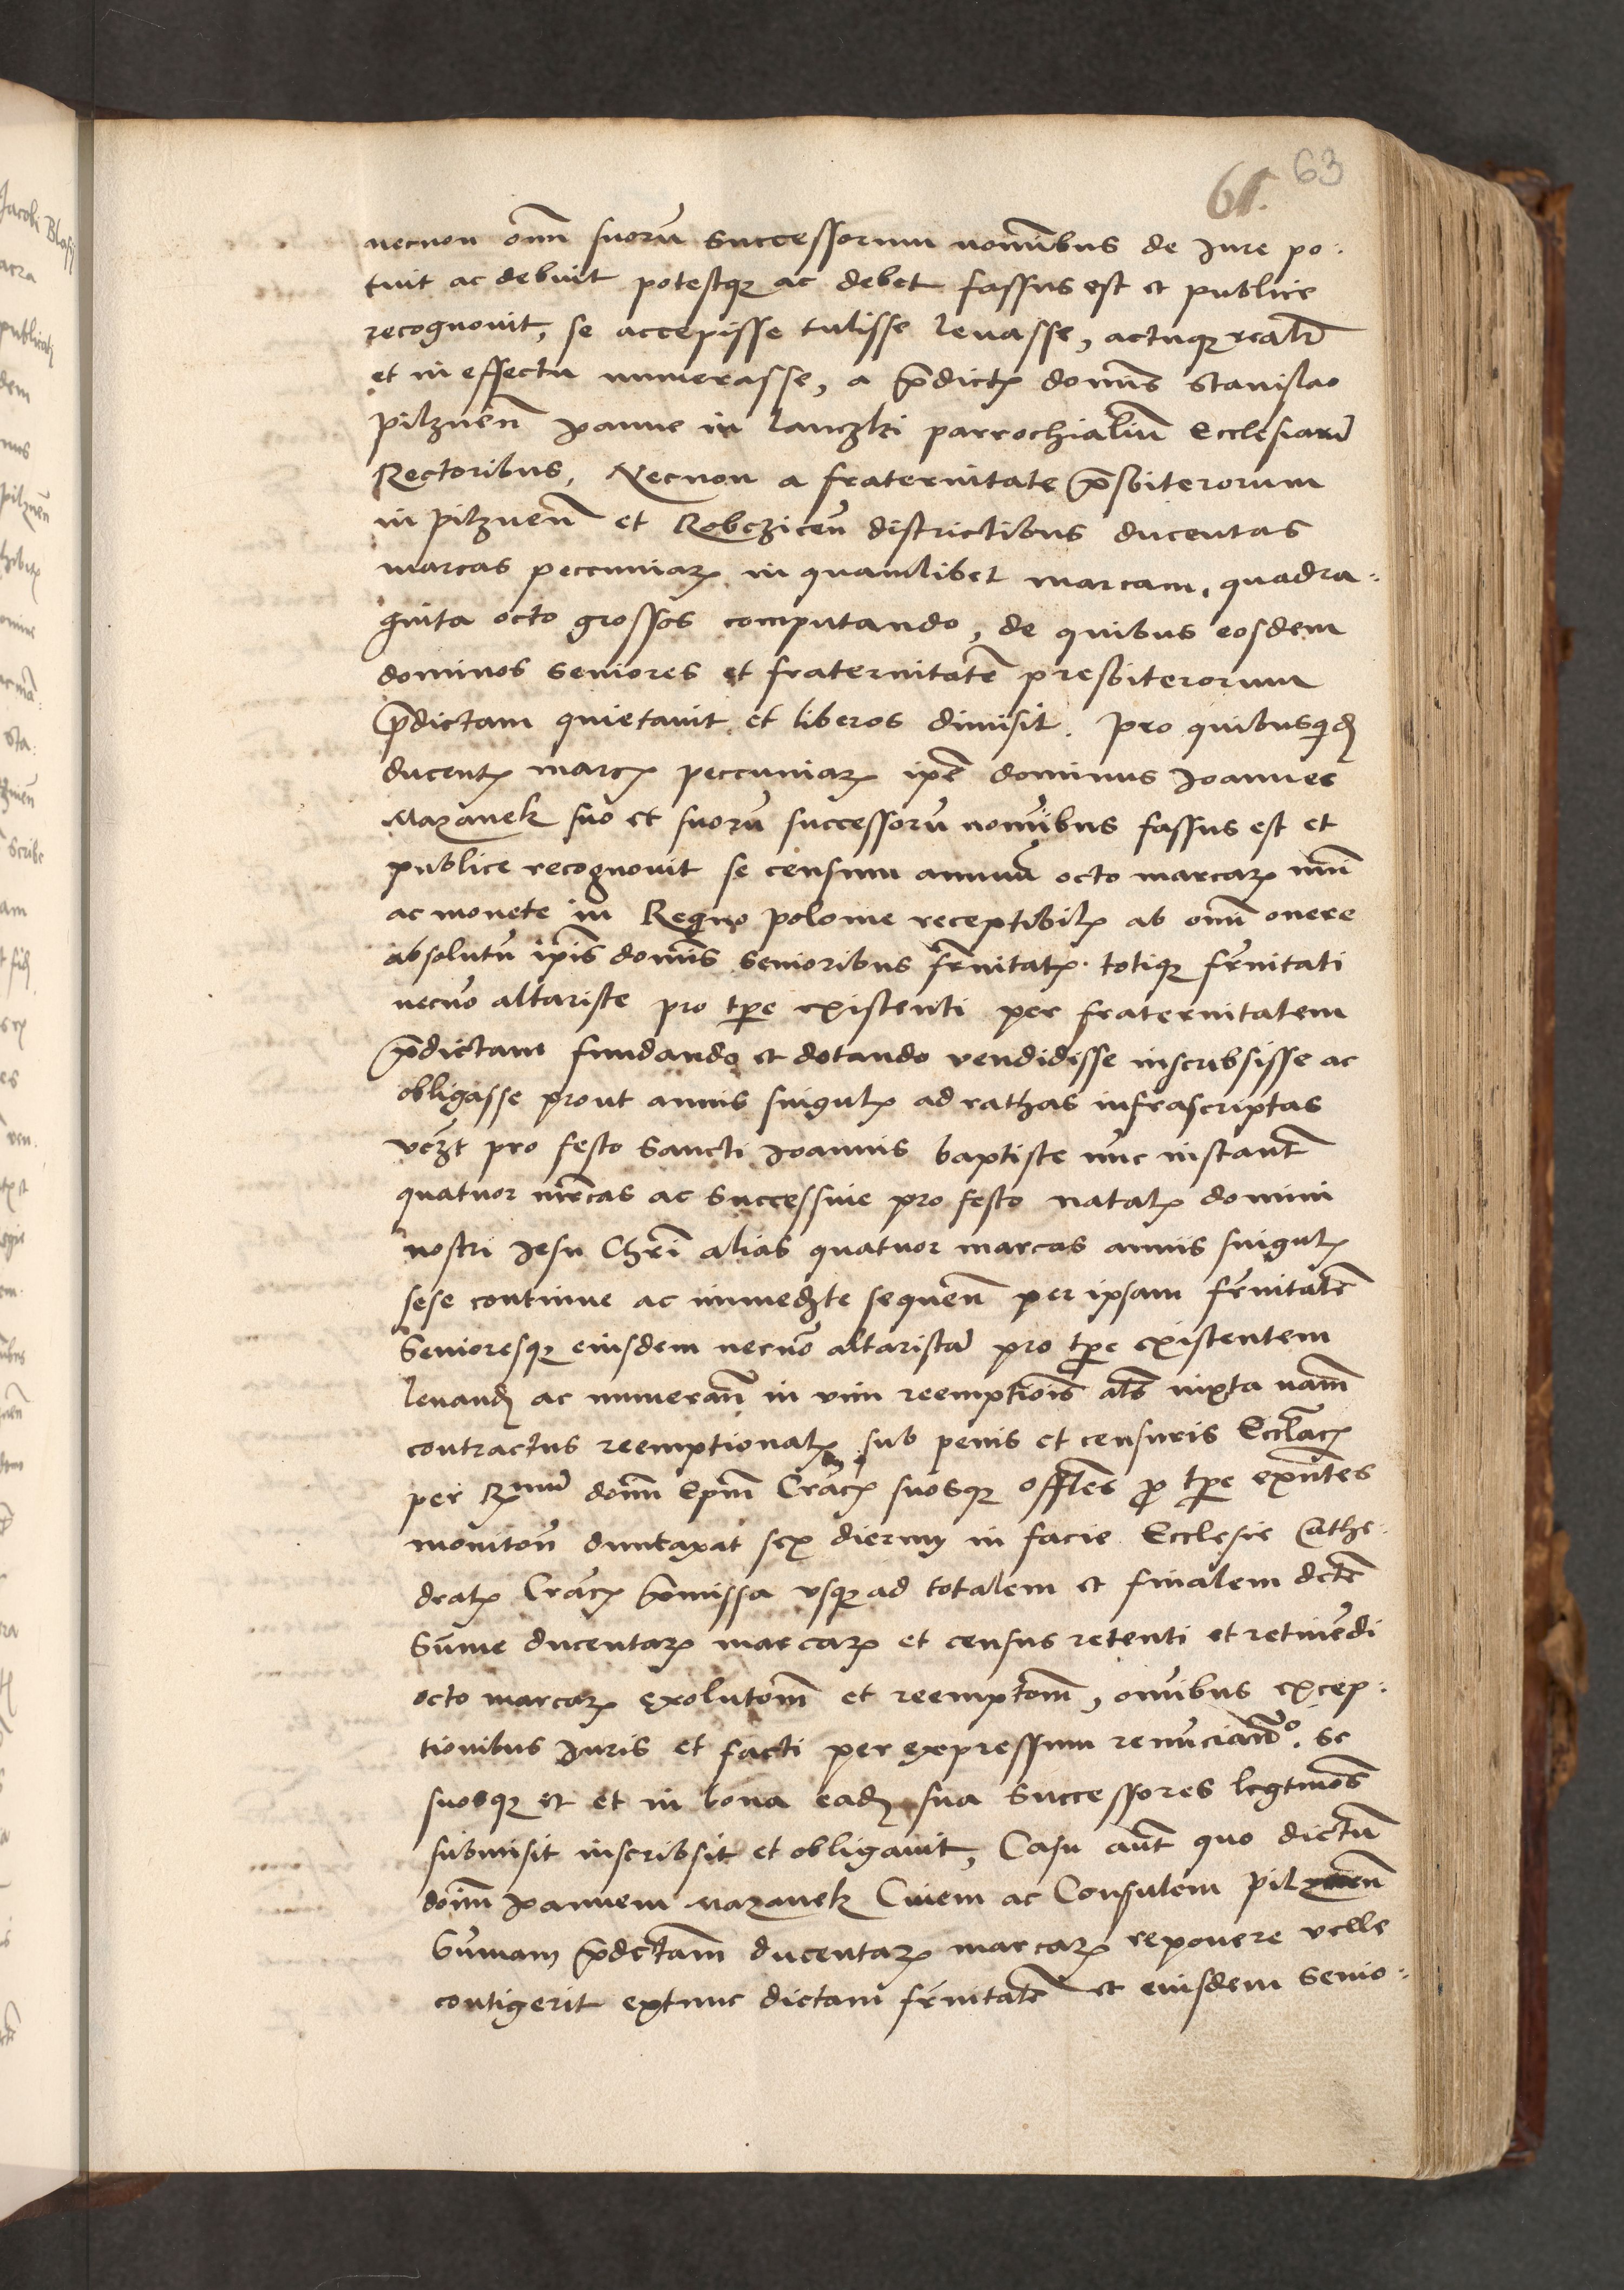 61. 63
necnon om̄ suorū successorum nominibus de Iure po:
tuit ac debuit potestq₃ ac debet fassus est et publice
recognouit, se accepisse tulisse leuasse, actuq₃ realr̄
et in effectu numerasse, a p̄dictꝭ dominis Stanislao
pilznen̄ Joanne in Lanczki parrochialiū Ecclesiarū
Rectoribus, Necnon a fraternitate p̄sbiterorum
in pilznen̄ et Robczicen̄ districtibus ducentas
marcas peccuniaꝝ in quamlibet marcam, quadra:
ginta octo grossos computando, de quibus eosdem
dominos Seniores et fraternitatē presbiterorum
p̄dictam quietauit et liberos dimisit. Pro quibusqꝫ
ducentꝭ marcꝭ peccuniaꝝ ip̄e dominus Joannes
Mazanek suo et suorū successorū noīibus fassus est et
publice recognouit se censum annuū octo marcaꝝ
ac monete in Regno polonie receptibilꝭ ab omī onere
absolutū ip̄is dominis Senioribus fr̄nitatꝭ. totiq₃ fr̄nitati
necnō altariste pro tp̄e existenti per fraternitatem
p̄dictam fundando et dotando vendidisse inscribsisse ac
obligasse prout annis singulꝭ ad rathas infrascriptas
vcꝫt pro festo Sancti Joannis baptiste nūc instant̄
quatuor mr̄cas ac successiue pro festo natalꝭ domini
nostri Jesu Chr̄i alias quatuor marcas annis singulꝭ
sese continue ac immedꝫte sequen̄ per ipsam fr̄nitatē
Senioresq₃ eiusdem necnō altaristā pro tp̄e existentem
leuandꝭ ac numeran̄ in vim reemptiōis al̄s iuxta nām̄
contractus reemptionalꝭ sub penis et censuris Eccl̄iacꝭ
per R̄mum dom̄ Ep̄m Cracꝭ suosq₃ offl̄es ꝓ tp̄e exn̄tes
monitōn̄ duntaxat sex dierum in facie Ecclesie Cathe:
dralꝭ Cracꝭ p̄missa vsq₃ ad totalem et finalem dctē
Sūme ducentaꝝ marcaꝝ et census retenti et retinēdi
octo marcaꝝ exolutōm̄ et reemptōm̄, omībus excep:
tionibus Iuris et facti per expressum renūcian̄º. se
suosq₃ et et in bona eadꝫ sua Successores legtimōs
submisit inscribsit et obligauit, Casu aūt quo dictū
dom̄ Joannem Mazanek Ciuem ac Consulem pilznen̄
Sūmam p̄dctam̄ ducentaꝝ marcaꝝ reponere velle
contigerit extunc dictam fr̄nitatē et eiusdem Senio: